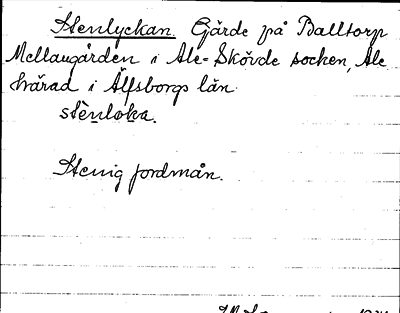 Stenlyckan. Gärde på Balltorp
Mellangården i Ale-Skövde socken, Ale
härad i Älfsborgs län.
stènloka.
Stenig jordmån.